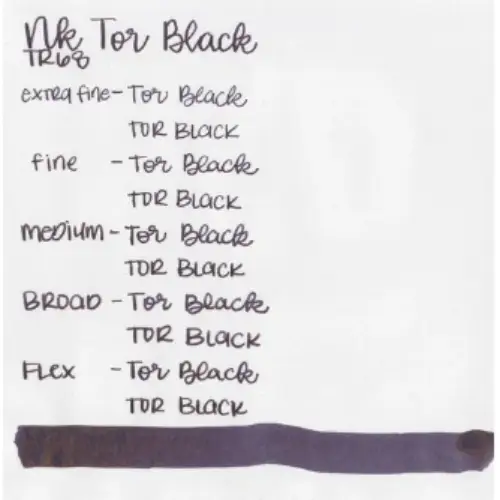 Nk Tor Black
TR68
extra fine - Tor Black
TOR BLACK
fine - Tor Black
TOR BLACK
medium - Tor Black
TOR BLACK
BROAD - Tor Black
TOR BLACK
FLex - Tor Black
TOR BLACK